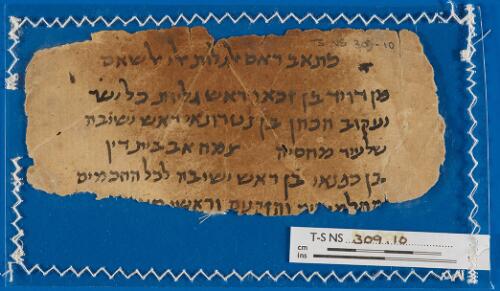 T-S NS 309-10
כתאב ראס
מן דויד בן זכאי ראש גלות כל ישר
יעקוב הכהן בן נטרונאי ראש ישובה
שלעיר מחסיה צמח אב בית דין
בן כפנאי בן ראש ישובה לכל החכמים
וראשי
T-S NS 309.10
cm
ins